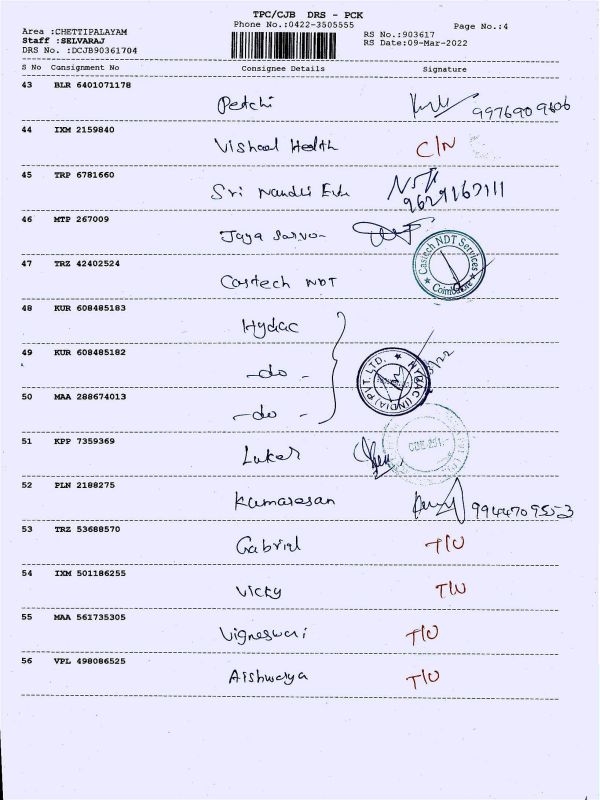 TPC/CJB DRS - PCK
Phone No.:0422-3505555
Page No.:4
Area :CHETTIPALAYAM
Staff :SELVARAJ
DRS No. :DCJB90361704
RS No.:903617
RS Date:09-Mar-2022
S No Consignment No Consignee Details Signature
43 BLR 6401071178
Petchi 9976909606
44 IXM 2159840
Vishaal Health C/N
45 TRP 6781660
Sri Nandi
9629162111
46 MTP 267009
Jaya
47 TRZ 42402524
Castech NDT
Castech NDT Services
Coimbatore
48 KUR 608485183
Hydac
49 KUR 608485182
-do-
50 MAA 288674013
-do-
HYDAC (INDIA) PVT. LTD.
51 KPP 7359369
52 PLN 2188275
Kumaresan 9944709553
53 TRZ 53688570
Gabriel T/U
54 IXM 501186255
Vicky T/U
55 MAA 561735305
Vigneswari T/U
56 VPL 498086525
Aishwarya T/U